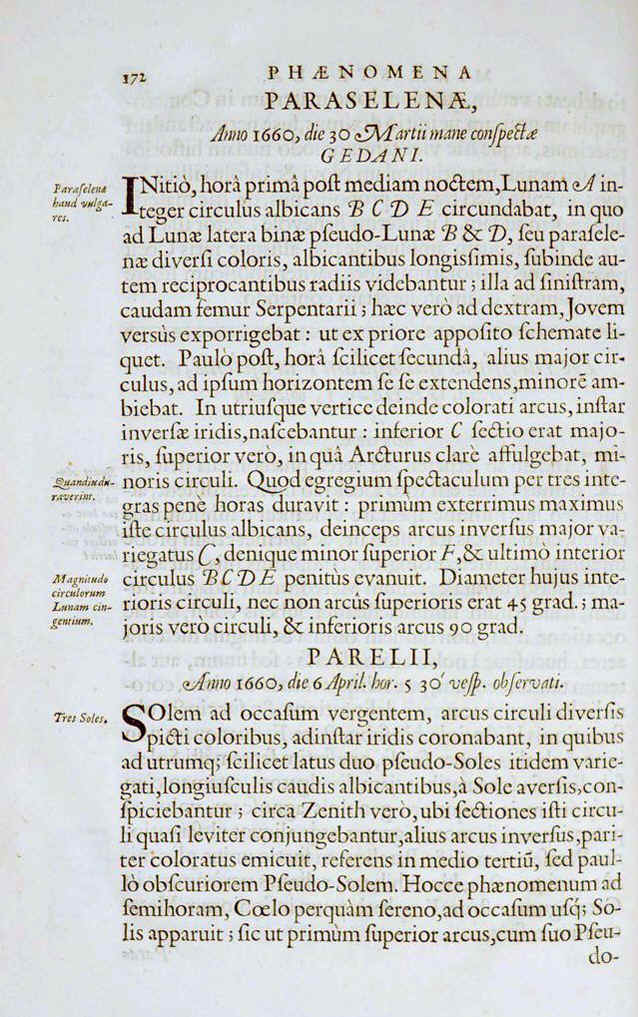 172
PHÆNOMENA
PARASELENÆ,
Anno 1660, die 30 Martii mane conſpectæ
GEDANI.
Paraſelenæ
haud vulga-
res.
INitiò, horâ primâ poſt mediam noctem, Lunam A in-
teger circulus albicans B C D E circundabat, in quo
ad Lunæ latera binæ pſeudo-Lunæ B & D, ſeu paraſele-
næ diverſi coloris, albicantibus longisſimis, ſubinde au-
tem reciprocantibus radiis videbantur; illa ad ſiniſtram,
caudam femur Serpentarii; hæc verò ad dextram, Jovem
versùs exporrigebat: ut ex priore appoſito ſchemate li-
quet. Paulò poſt, horâ ſcilicet ſecundâ, alius major cir-
culus, ad ipſum horizontem ſe ſe extendens, minorē am-
biebat. In utriuſque vertice deinde colorati arcus, inſtar
inverſæ iridis, naſcebantur: inferior C ſectio erat majo-
ris, ſuperior verò, in quâ Arcturus clarè affulgebat, mi-
Quandiu du-
raverint.
noris circuli. Quod egregium ſpectaculum per tres inte-
gras penè horas duravit: primùm exterrimus maximus
iſte circulus albicans, deinceps arcus inverſus major va-
riegatus C, denique minor ſuperior F, & ultimò interior
Magnitudo
circulorum
Lunam cin-
gentium.
circulus B C D E penitùs evanuit. Diameter hujus inte-
rioris circuli, nec non arcûs ſuperioris erat 45 grad.; ma-
joris verò circuli, & inferioris arcus 90 grad.
PARELII,
Anno 1660, die 6 April. hor. 5 30′ veſp. obſervati.
Tres Soles.
SOlem ad occaſum vergentem, arcus circuli diverſis
picti coloribus, adinſtar iridis coronabant, in quibus
ad utrumq; ſcilicet latus duo pſeudo-Soles itidem varie-
gati, longiuſculis caudis albicantibus, à Sole averſis, con-
ſpiciebantur; circa Zenith verò, ubi ſectiones iſti circu-
li quaſi leviter conjungebantur, alius arcus inverſus, pari-
ter coloratus emicuit, referens in medio tertiū, ſed paul-
lò obſcuriorem Pſeudo-Solem. Hocce phænomenum ad
ſemihoram, Cœlo perquàm ſereno, ad occaſum uſq; So-
lis apparuit; ſic ut primùm ſuperior arcus, cum ſuo Pſeu-
do-